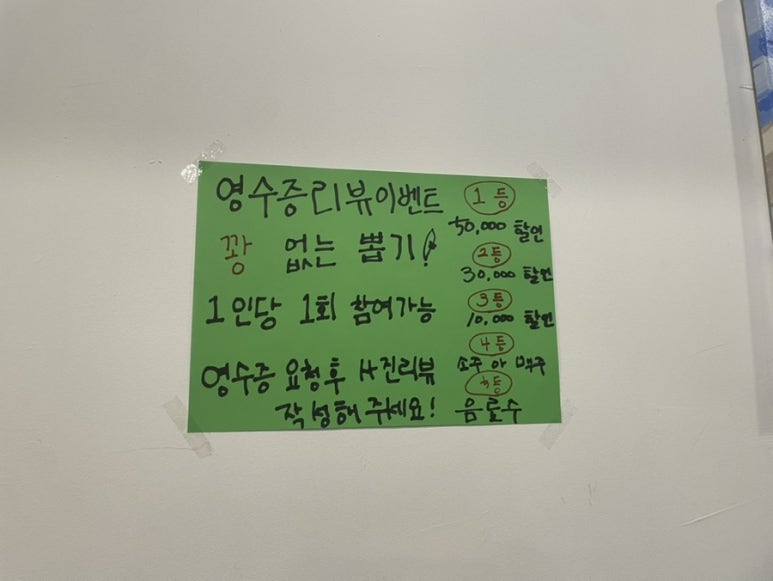 영수증리뷰이벤트
꽝 없는 뽑기!
1인당 1회 참여가능
영수증 요청후 사진리뷰
작성해 주세요!
1등
50,000 할인
2등
30,000 할인
3등
10,000 할인
4등
소주 아 맥주
5등
음료수